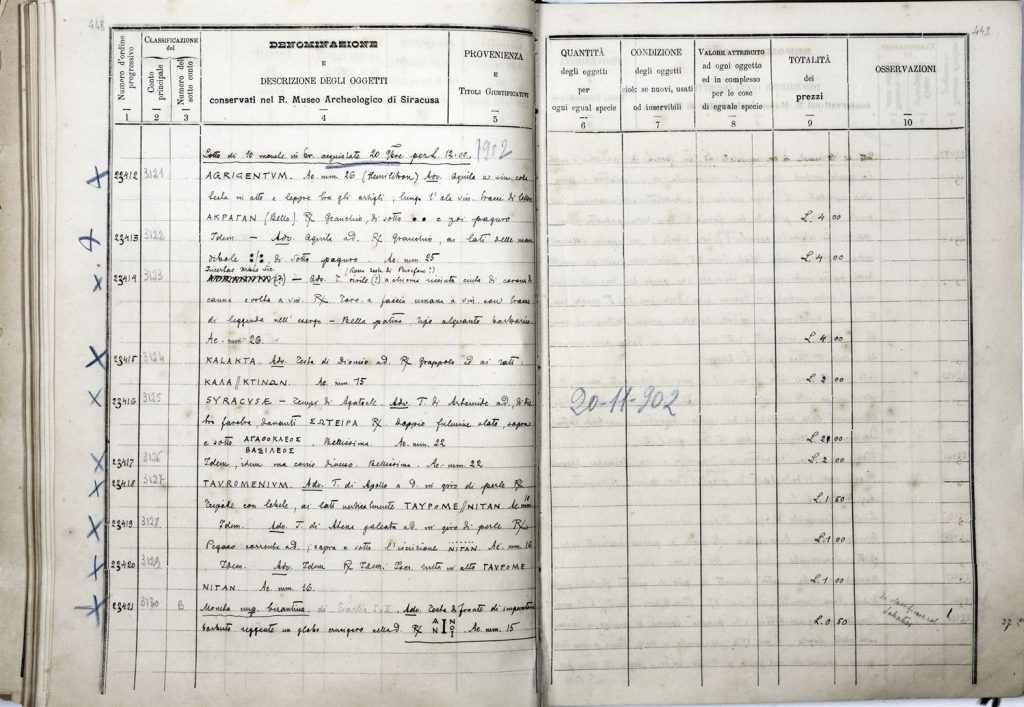 448
449
Numero d'ordine progressivo
CLASSIFICAZIONE del
Conto principale
Numero del sotto conto
DENOMINAZIONE
E
DESCRIZIONE DEGLI OGGETTI
conservati nel R. Museo Archeologico di Siracusa
PROVENIENZA
E
TITOLI GIUSTIFICATIVI
QUANTITÀ
degli oggetti
per
ogni egual specie
CONDIZIONE
degli oggetti
cioè: se nuovi, usati
od inservibili
VALORE ATTRIBUITO
ad ogni oggetto
ed in complesso
per le cose
di eguale specie
TOTALITÀ
dei
prezzi
OSSERVAZIONI
1 2 3 4 5 6 7 8 9 10
Lotto di 10 monete in br. acquistate 20 9bre per L. 12.00. 1902
23412 3121 AGRIGENTVM. Ae. mm 26 (Hemilitron) Adv. Aquila a sin. con
testa in alto e lepre tra gli artigli; lungo l'ale vin. tracce di
ΑΚΡΑΓΑΝ (Bello) R/ Granchio, di sotto •• e poi paguro L. 4 00
23413 3122 Idem — Adv. Aquila ad. R/ Granchio, ai lati delle man
dibole di sotto paguro. Ae. mm. 25 L. 4 00
Incertae
23414 3123 (?) — Adv. T. virile (?) (Rossi testa di Persefone?) a chioma recinta di corona di
canna e volta a vin. R/ Toro a faccia umana a vin. con tracce
di leggenda nell'esergo — Bella patina tipo alquanto barbarico.
Ae. mm 26. L. 4 00
23415 3124 KALAKTA. Adv. Testa di Dioniso ad. R/ Grappolo ed ai lati:
ΚΑΛΑ//ΚΤΙΝΩΝ. Ae. mm. 15 L. 2 00
23416 3125 SYRACVSAE — Tempi di Agatocle. Adv. T. di Artemide ad., die
tro faretra, davanti ΣΩΤΕΙΡΑ R/ Doppio fulmine alato, sopra
e sotto ΑΓΑΘΟΚΛΕΟΣ ΒΑΣΙΛΕΟΣ. Bellissima. Ae. mm. 22 L. 2 00
20-11-902
23417 3126 Idem, idem ma conio diverso. Bellissima. Ae. mm. 22 L. 2 00
23418 3127 TAVROMENIVM. Adv. T. di Apollo a d. in giro di perle R/
Tripode con lebete, ai lati verticalmente ΤΑΥΡΟΜΕ//ΝΙΤΑΝ Ae. mm L. 1 50
23419 3128 Idem. Adv. T. di Athena galeata ad. in giro di perle R/
Pegaso corrente ad.; sopra e sotto l'iscrizione ΝΙΤΑΝ. Ae. mm 16 L. 1 00
23420 3129 Idem. Adv. Idem R/ Idem. Iscr. netta in alto ΤΑΥΡΟΜΕ
ΝΙΤΑΝ. Ae. mm. 16. L. 1 00
23421 3130 B Moneta bizantina. di Adv. Testa di fronte di imperatore
barbuto reggente un globo crucigero nella d. R/ A N I N O Ae. mm. 15 L. 0 50